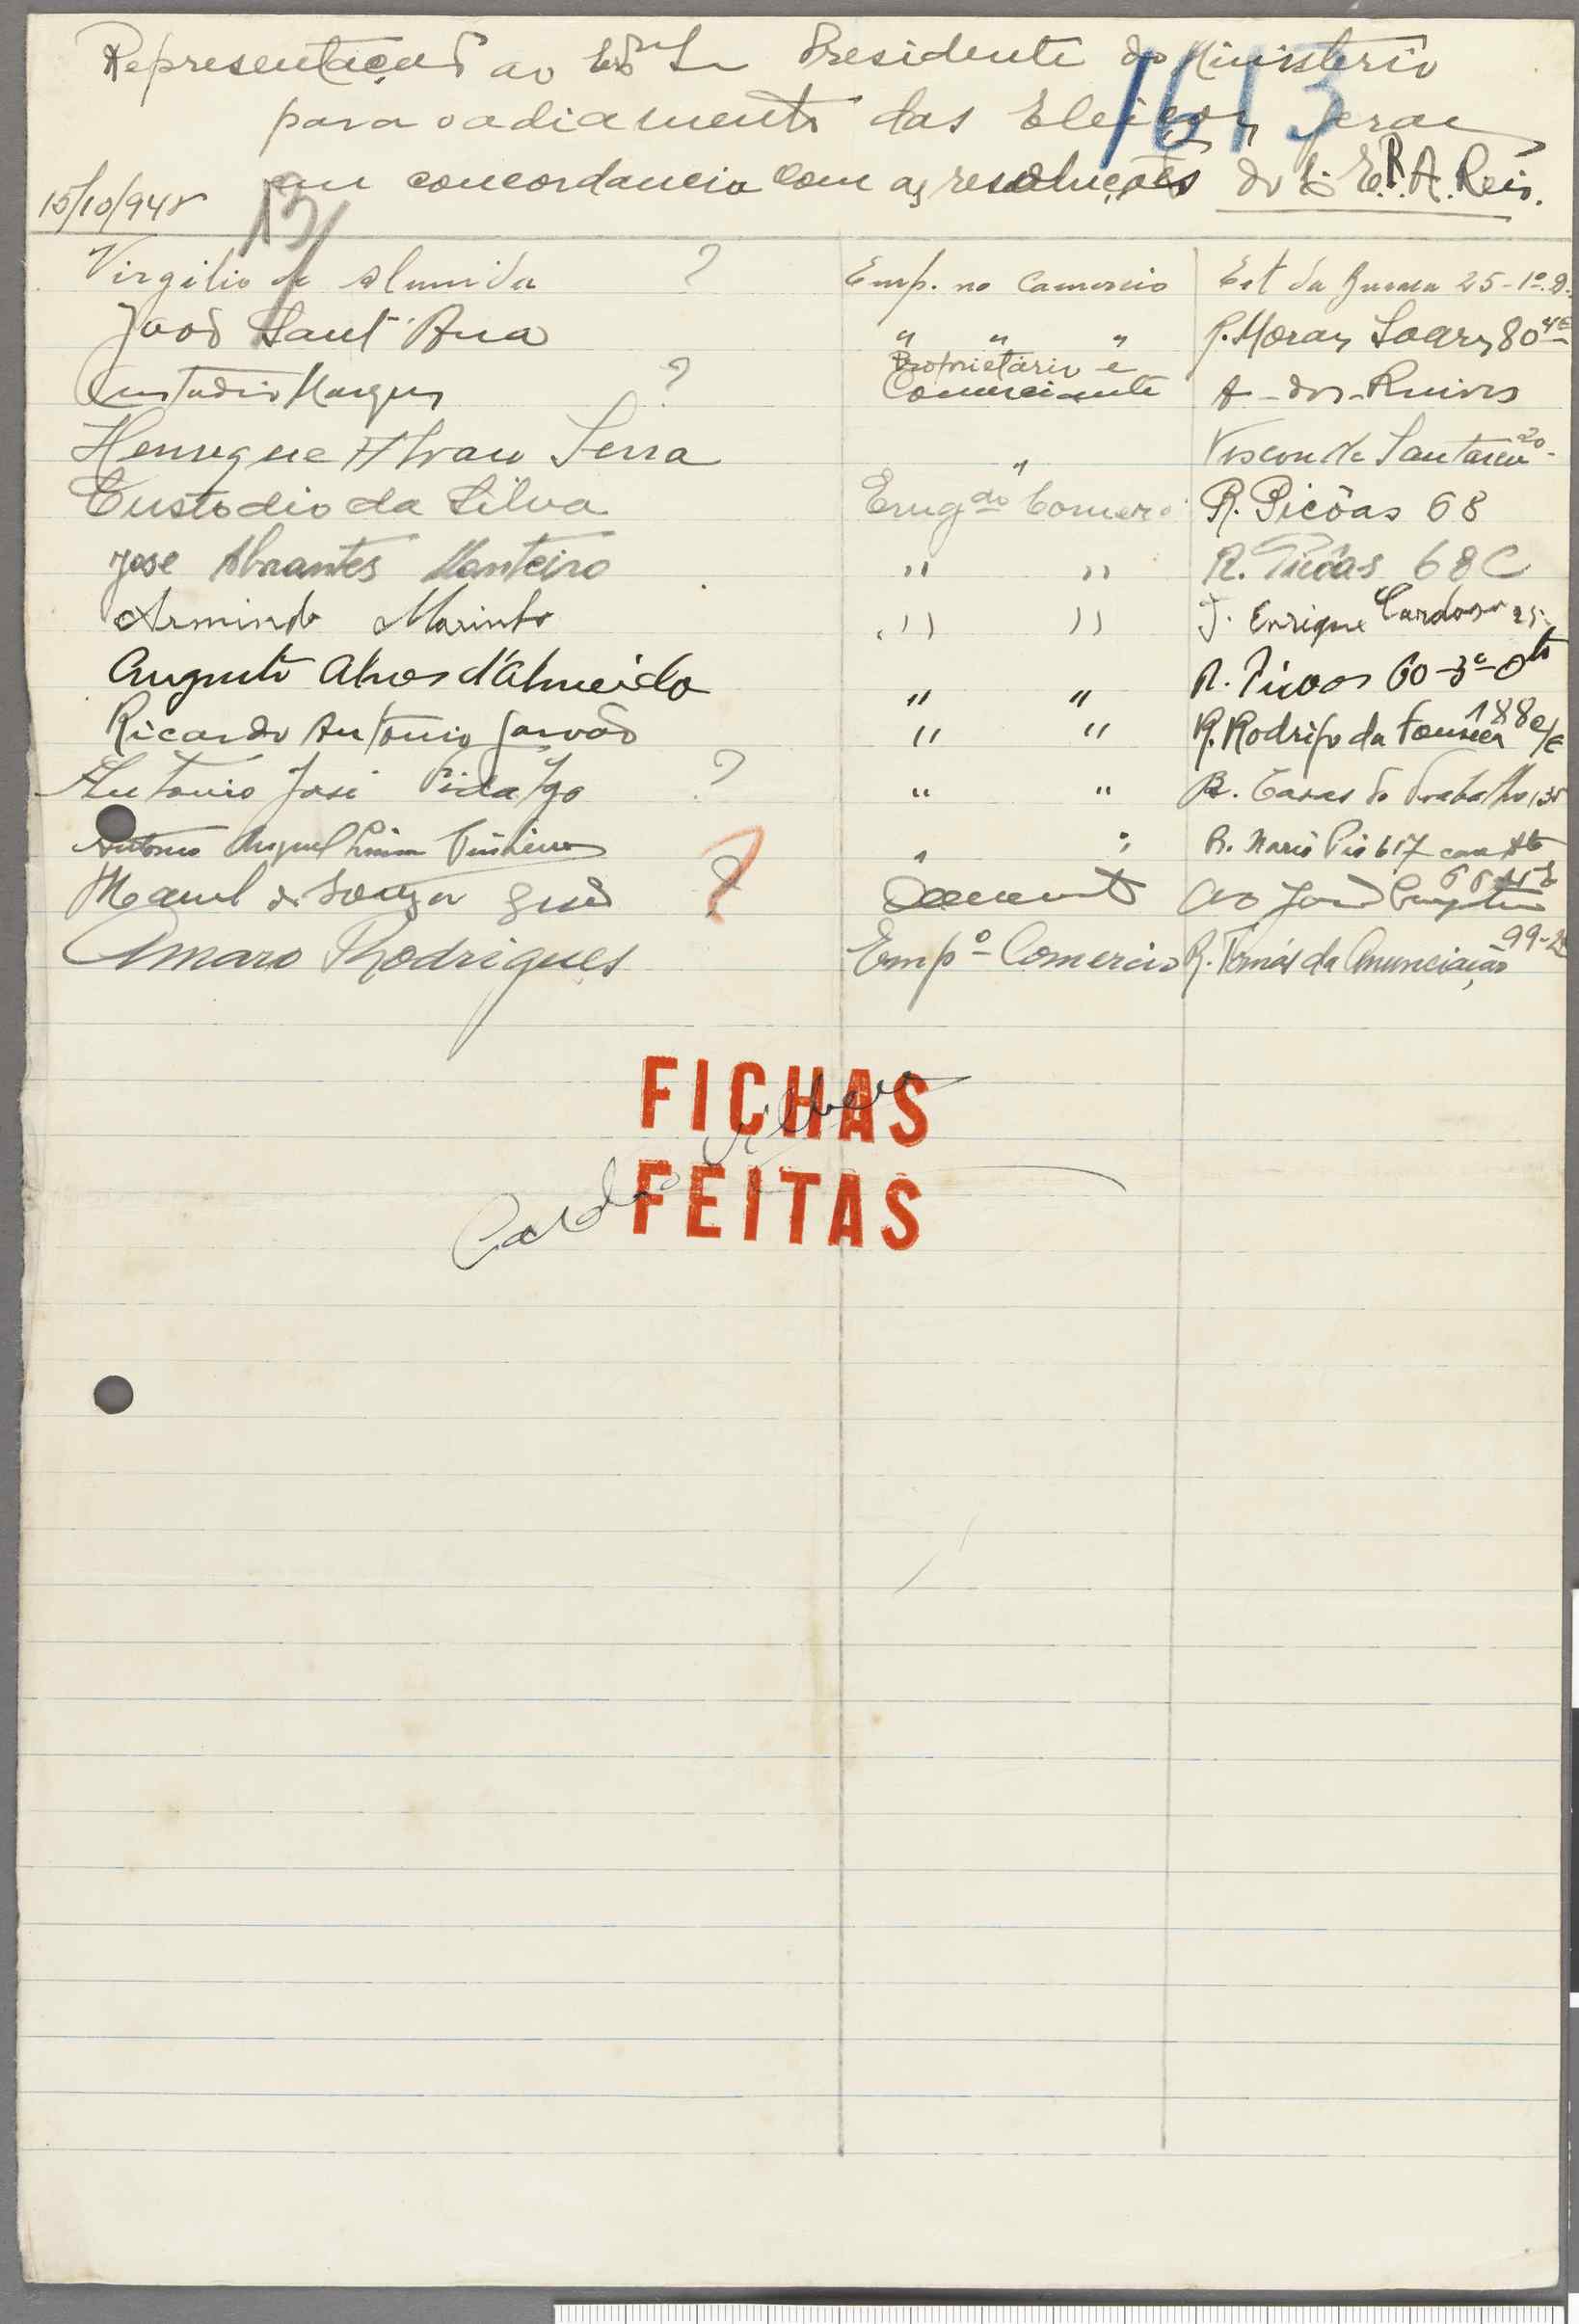 Representação ao Exmo Sr Presidente do Ministerio
1613
para o adiamento das Eleições gerae
em concordancia com as resoluções do E.P.A. Reis.
15/10/945
13
Virgilio de Almeida ? Emp. no Comercio Est da 25-1º-D.
João Sant'Ana " " " R. Moraes Soares 80 4º E
Custodio Marques ? Proprietário e Comerciante A-dos-Ruivos
Henrique Alvaro Serra " Visconde Santarem 20-
Custodio da Silva Emgdo Comerc R. Picôas 68
Jose Abrantes Monteiro " " R. Picôas 68 C
Armindo Marinho " " T. Enrique Cardoso 25
Augusto Alves d'Almeida " " R. Picoas 60-3º-Dto
Ricardo Antonio " " R. Rodrigo da Fonseca 188 c/E
Antonio José Fidalgo ? " " R. Casas do Trabalho, 35
Antonio Miguel " " R. Maria Pia 617
Manuel de Souza ?
Amaro Rodrigues Empº Comercio R. Tomás da Anunciação 99-2º
FICHAS
FEITAS